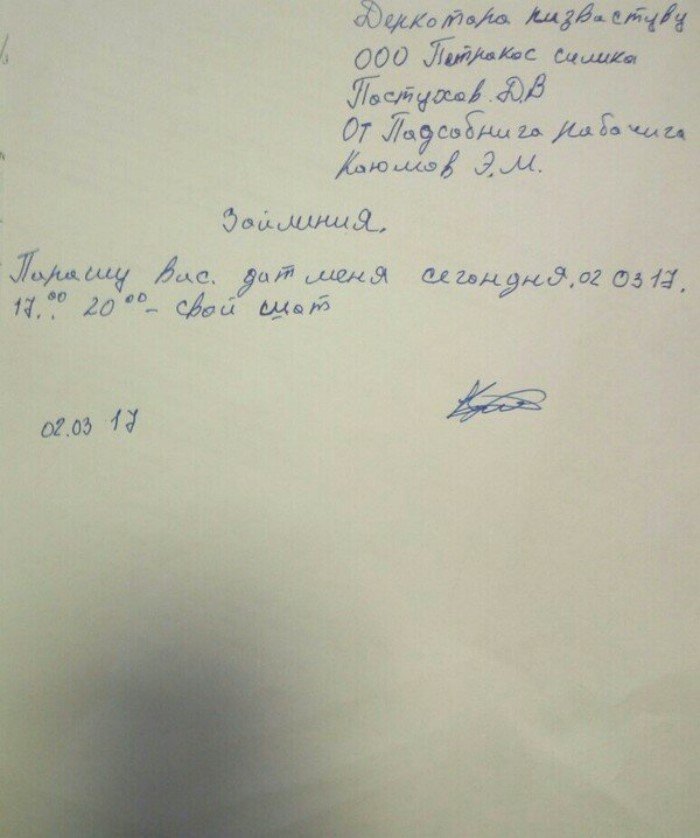 Деркотара пизвастуву
ООО Петракас силика
Пастухов. Д.В
От Падсобнига рабочига
Каюмов Э.М.
Зойлиния.
Парашу Вас. дат меня сегондня. 02 03 17.
17.00 20 00 - свой счот
02.03 17